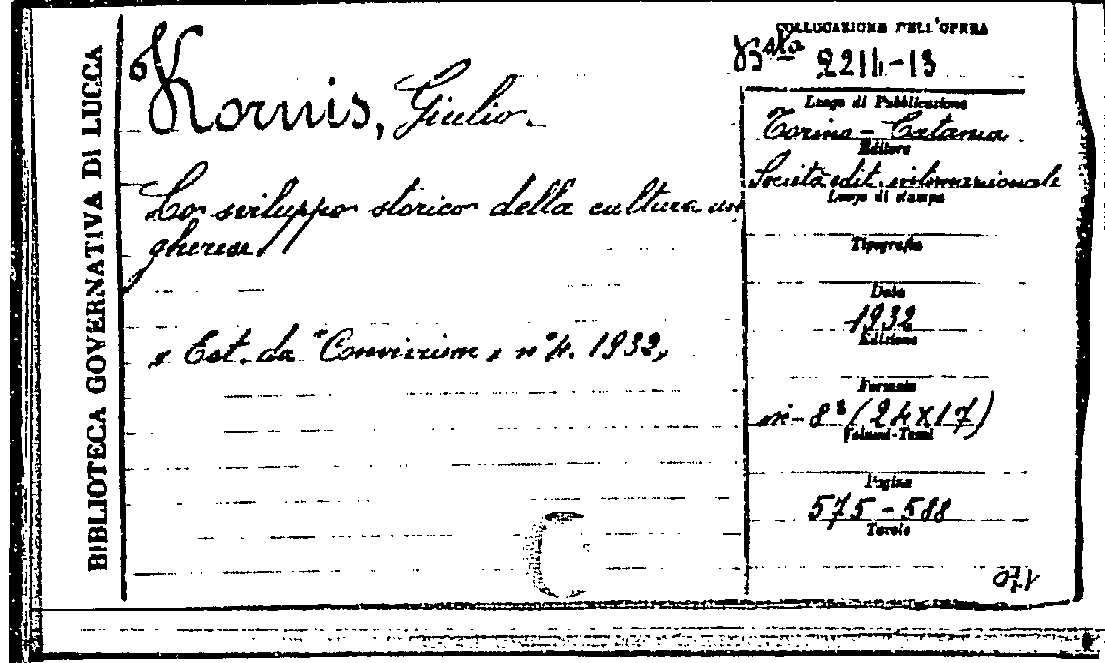 BIBLIOTECA GOVERNATIVA DI LUCCA
Kornis, Giulio.
Lo sviluppo storico della cultura un
gherese
« Est. da "Convivium » n° 4. 1932,
COLLOCAZIONE DELL'OPERA
Bta 2211-13
Luogo di Pubblicazione
Torino - Catania
Editore
Società edit. internazionale
Luogo di stampa
Tipografia
Data
1932
Edizione
Formato
in-8° (24x17)
Volumi-Tomi
Pagine
575-588
Tavole